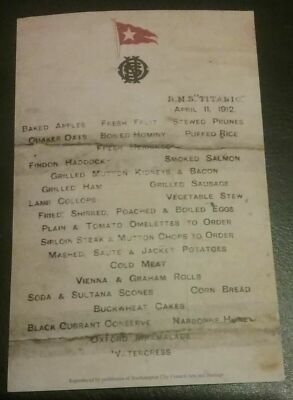 R.M.S. "TITANIC"
APRIL 11, 1912.
BAKED APPLES FRESH FRUIT STEWED PRUNES
QUAKER OATS BOILED HOMINY PUFFED RICE
FRESH HERRINGS
FINDON HADDOCK SMOKED SALMON
GRILLED MUTTON KIDNEYS & BACON
GRILLED HAM GRILLED SAUSAGE
LAMB COLLOPS VEGETABLE STEW
FRIED, SHIRRED, POACHED & BOILED EGGS
PLAIN & TOMATO OMELETTES TO ORDER
SIRLOIN STEAK & MUTTON CHOPS TO ORDER
MASHED, SAUTÉ & JACKET POTATOES
COLD MEAT
VIENNA & GRAHAM ROLLS
SODA & SULTANA SCONES CORN BREAD
BUCKWHEAT CAKES
BLACK CURRANT CONSERVE NARBONNE HONEY
OXFORD MARMALADE
WATERCRESS
Reproduced by permission of Southampton City Council Arts and Heritage